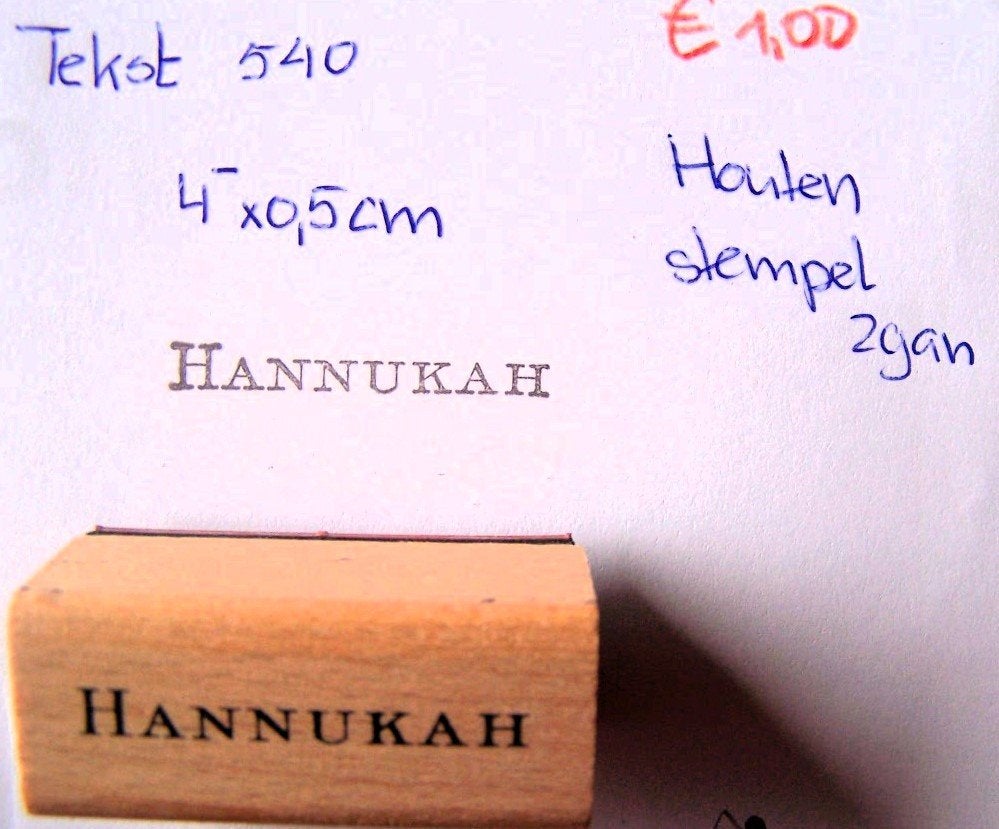 Tekst 540
€ 1,00
4- x0,5cm
Houten
stempel
zgan
HANNUKAH
HANNUKAH